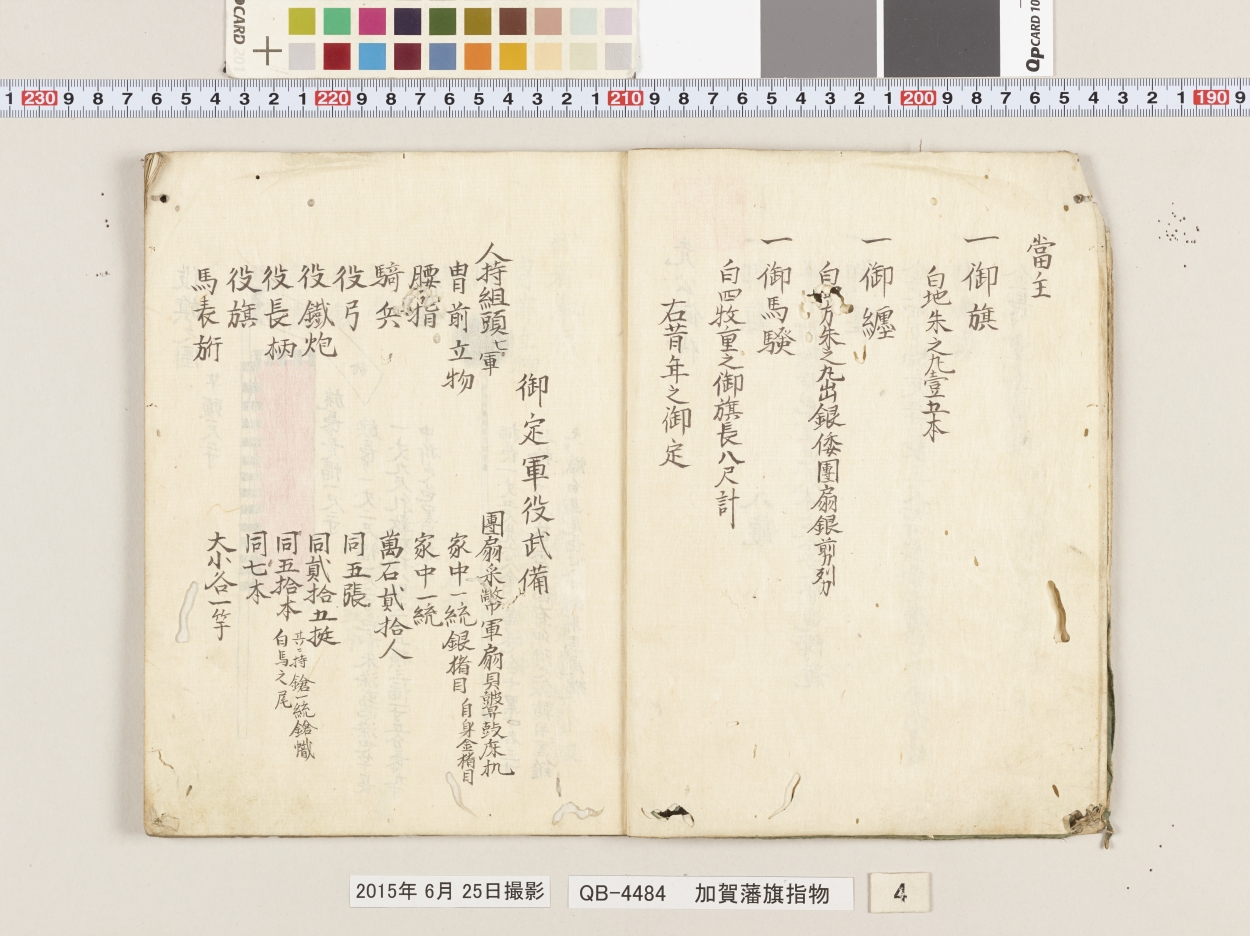 當主
一御旗
白地朱之丸壹五本
一御纏
白四方朱之丸出銀倭團扇銀剪列
一御馬驗
白四牧重之御旗長八尺計
右昔年之御定
御定軍役武備
人持組頭七軍 團扇采幣軍扇貝鼙鼓床机
冑前立物 家中一統銀猪目 自身金猪目
腰指 家中一統
騎兵 萬石貳拾人
役弓 同五張
役鐵炮 同貳拾五挺
役長柄 同五拾本 其ニ持鎗一統鎗幟 白馬之尾
役旗 同七本
馬表斾 大小各一竿
2015年 6月 25日撮影
QB-4484 加賀藩旗指物
4
QPCARD 10
1 230 9 8 7 6 5 4 3 2 1 220 9 8 7 6 5 4 3 2 1 210 9 8 7 6 5 4 3 2 1 200 9 8 7 6 5 4 3 2 1 190 9